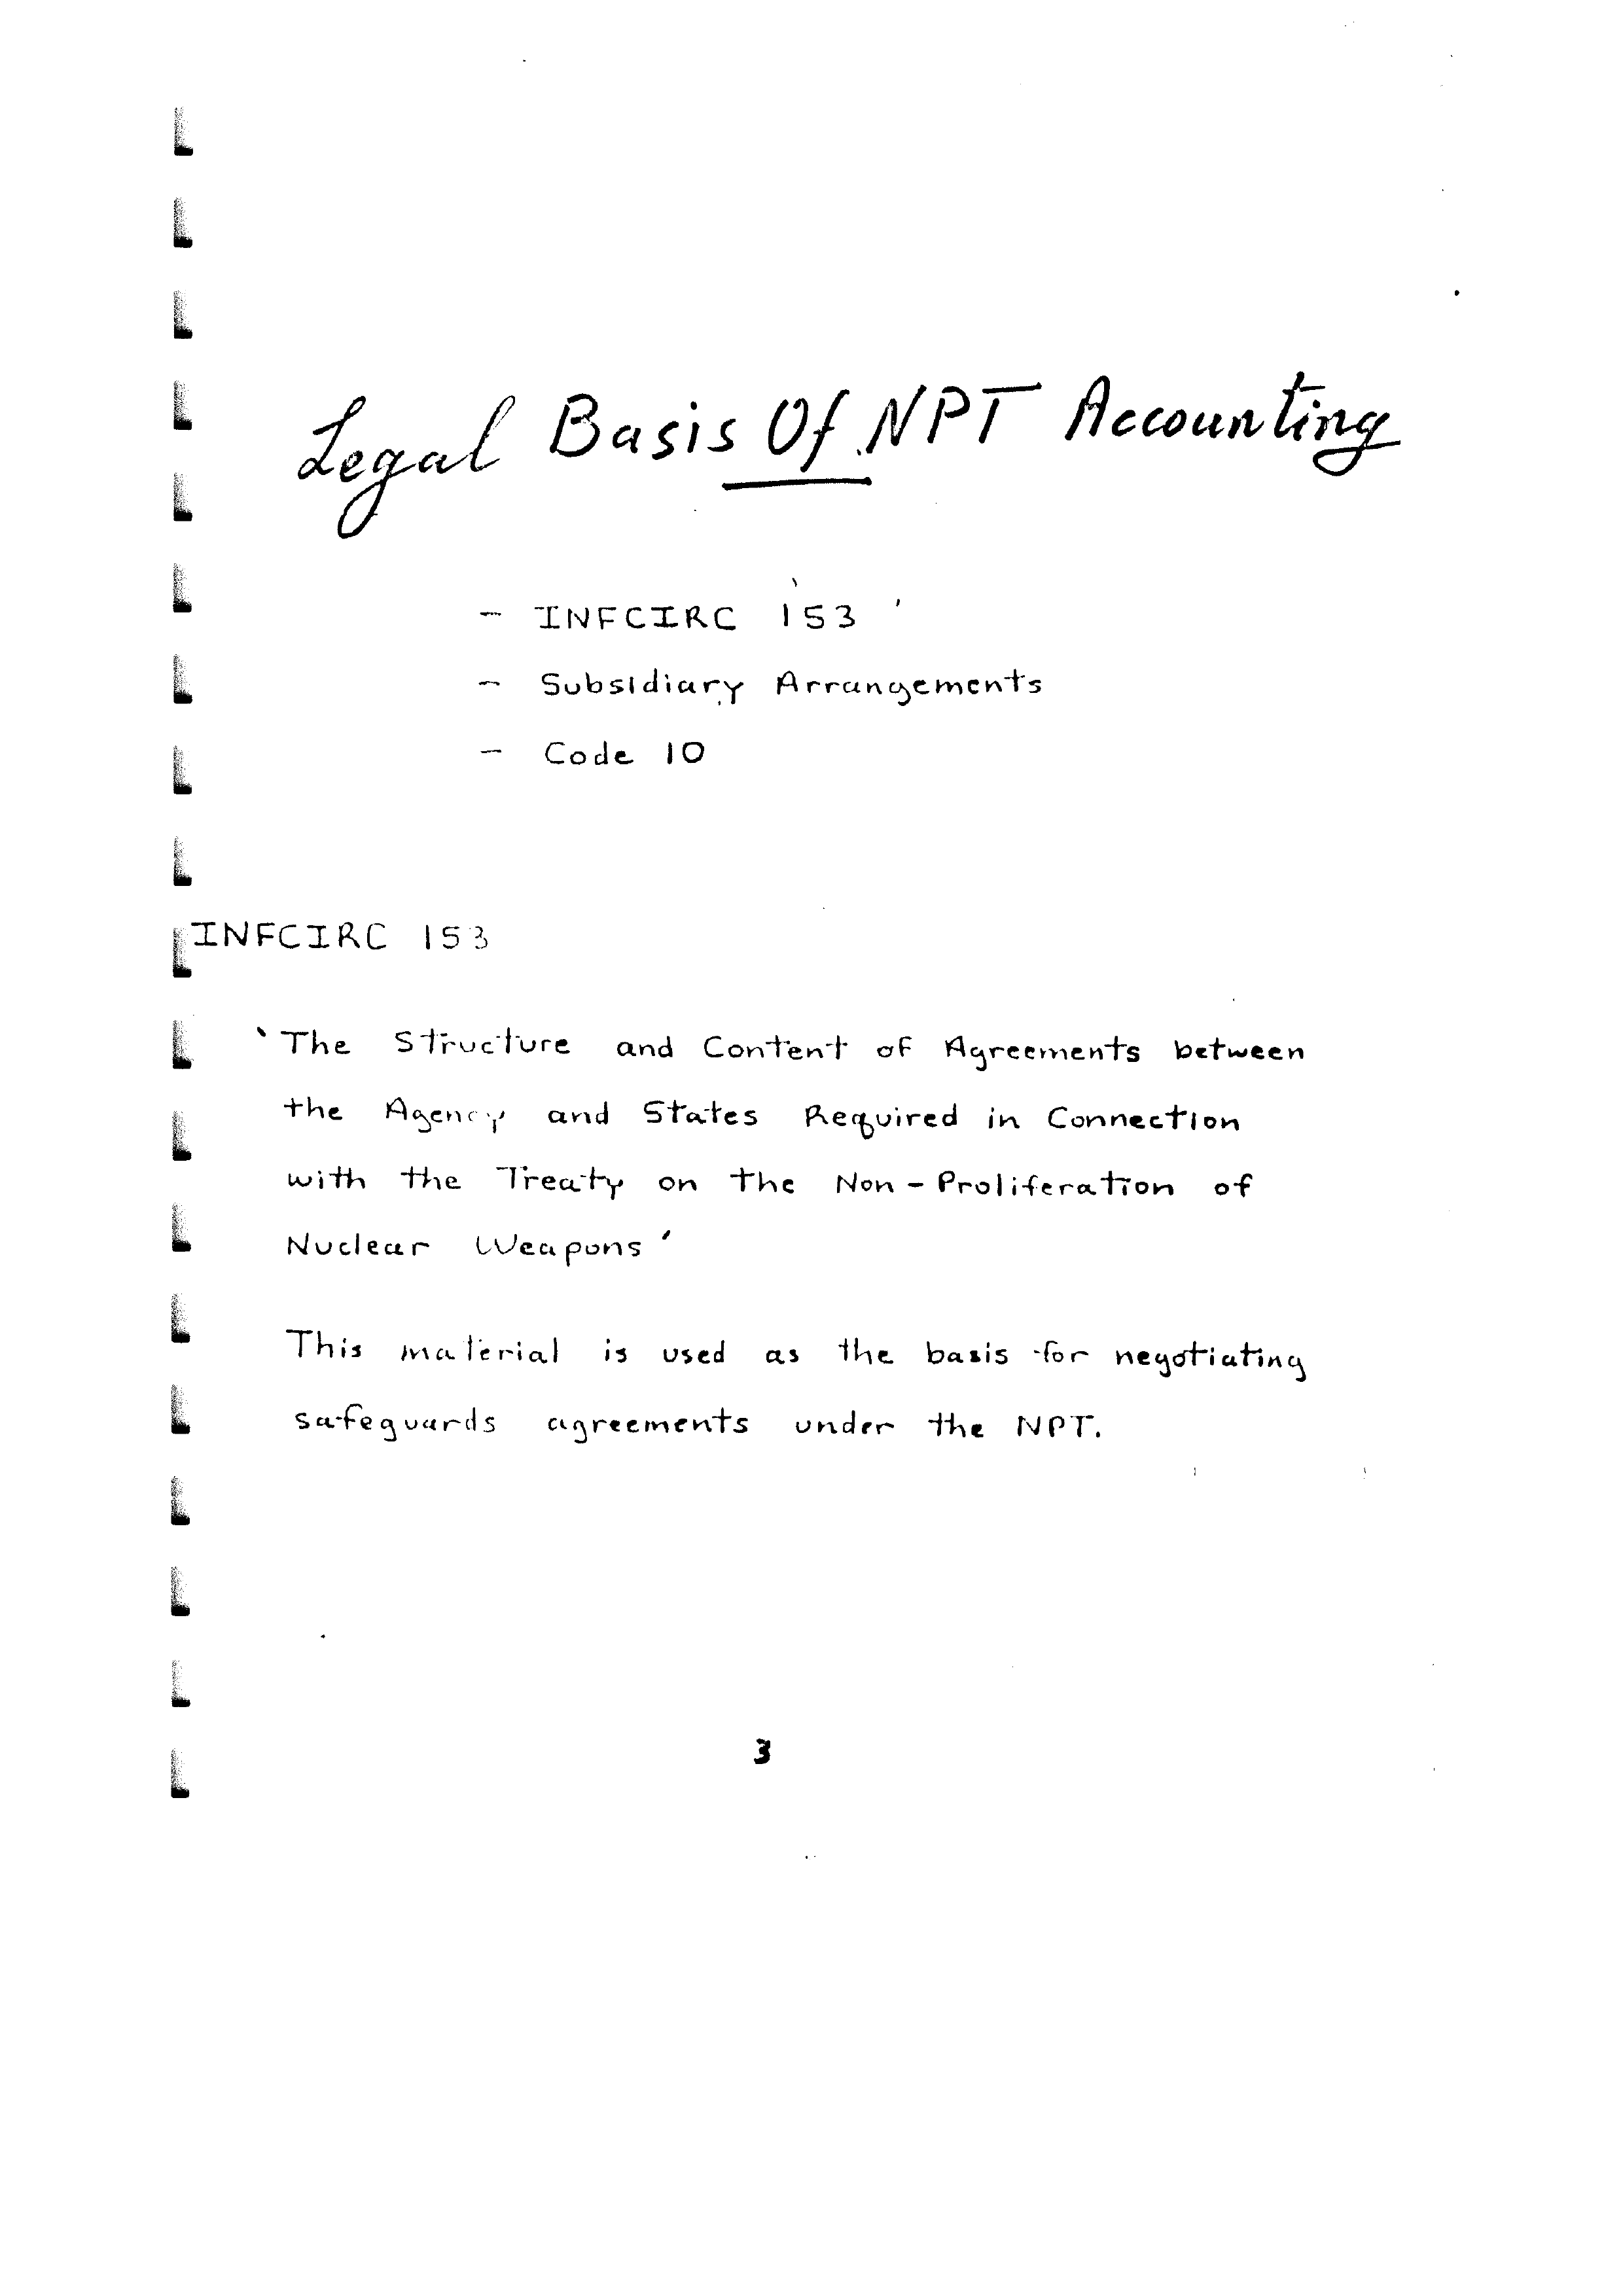 Legal Basis Of NPT Accounting
- INFCIRC 153
- Subsidiary Arrangements
- Code 10
INFCIRC 153
'The Structure and Content of Agreements between
the Agency and States Required in Connection
with the Treaty on the Non-Proliferation of
Nuclear Weapons'
This material is used as the basis for negotiating
safeguards agreements under the NPT.
3